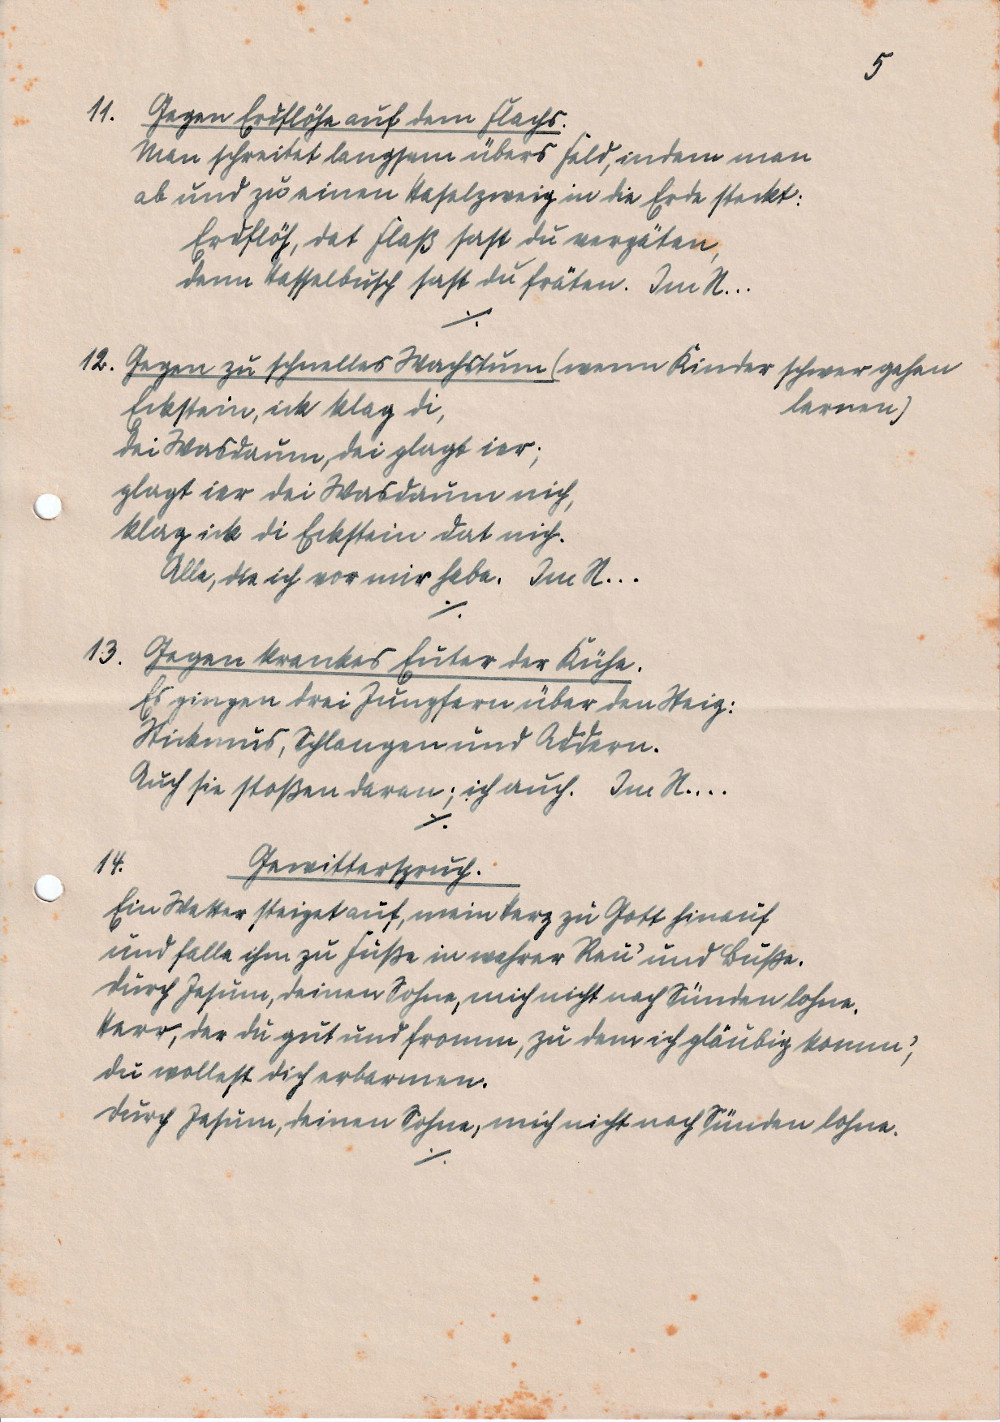 5
11. Gegen Erdflöhe auf dem Flachs.
Man schreitet langsam übers Feld, indem man
ab und zu einen Haselzweig in die Erde steckt:
Erdflöh, dat Flaß sast du vergäten,
denn Hasselbusch sast du fräten. Im N...
./.
12. Gegen zu schnelles Wachstum (wenn Kinder schwer gehen
lernen)
Eckstein, ick klag di,
Dei Wasdaum, dei plagt ier;
plagt ier dei Wasdaum nich,
klag ick di Eckstein dat nich.
Alle, die ich vor mir habe. Im N...
./.
13. Gegen krankes Euter der Kühe.
Es gingen drei Jungfern über den Steig:
Stickmus, Schlangen und Addern.
Auch sie stoßen daran; ich auch. Im N....
./.
14. Gewitterspruch.
Ein Wetter steiget auf, mein Herz zu Gott hinauf
und falle ihm zu Füße in wahrer Reu' und Buße.
Durch Jesum, deinen Sohne, mich nicht nach Sünden lohne.
Herr, der du gut und fromm, zu dem ich gläubig komm',
du wollest dich erbarmen.
Durch Jesum, deinen Sohne, mich nicht nach Sünden lohne.
./.